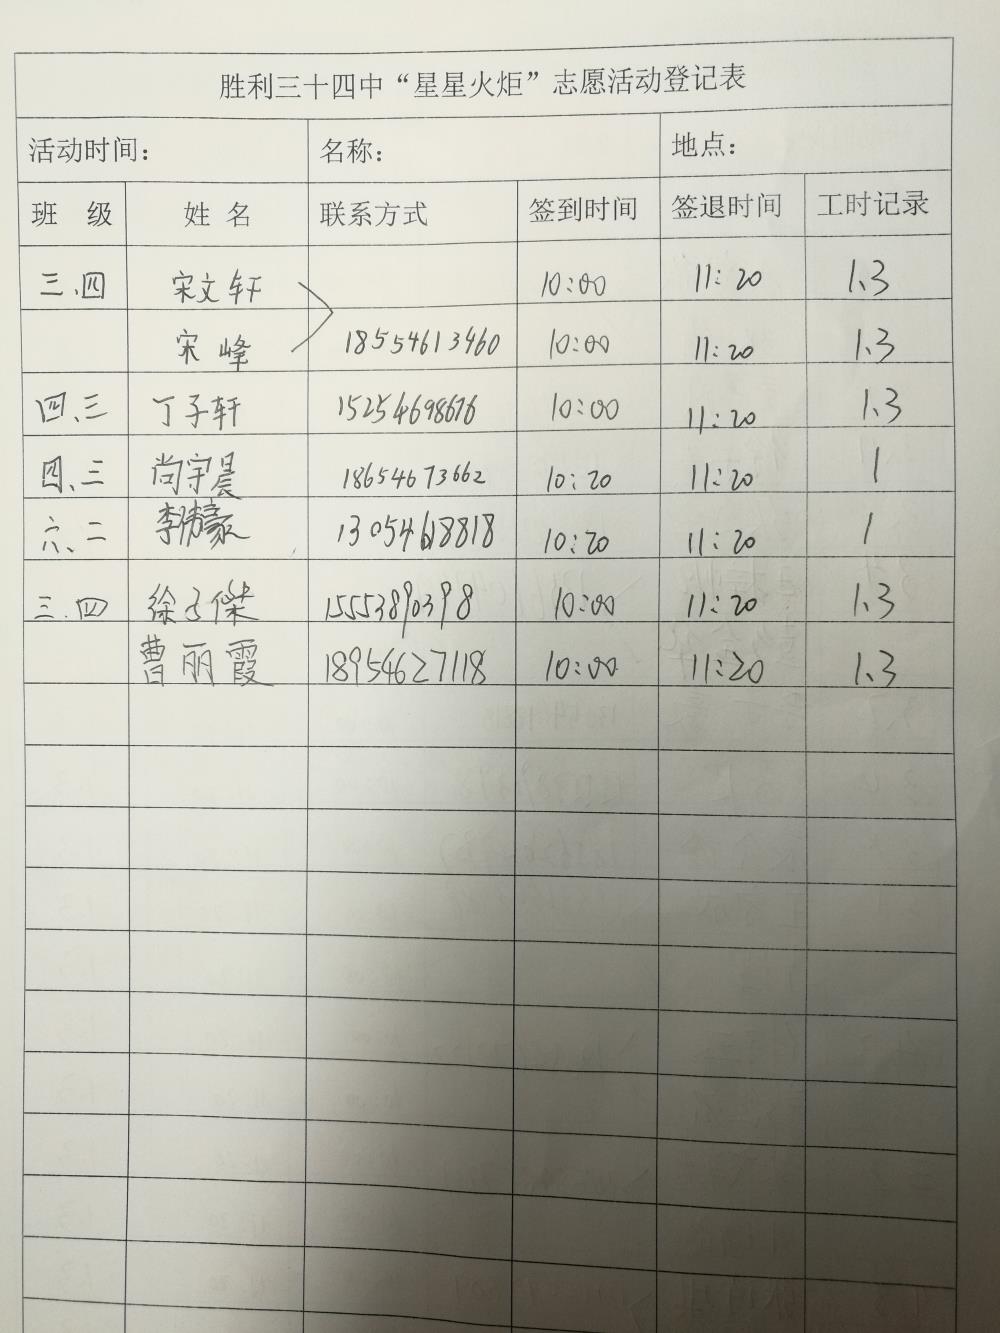 胜利三十四中“星星火炬”志愿活动登记表
活动时间： 名称： 地点：
班 级 姓 名 联系方式 签到时间 签退时间 工时记录
三、四 宋文轩 10:00 11:20 1.3
宋峰 18554613460 10:00 11:20 1.3
四、三 丁子轩 15254698676 10:00 11:20 1.3
四、三 尚宇晨 18654673662 10:20 11:20 1
六、二 李伟豪 13054618818 10:20 11:20 1
三.四 徐子傑 15553890398 10:00 11:20 1.3
曹丽霞 18954627118 10:00 11:20 1.3